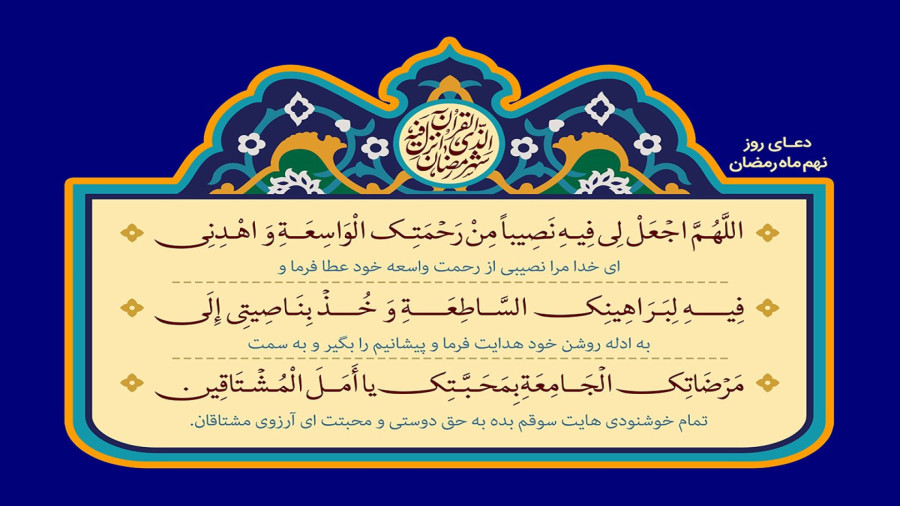 شهر رمضان الذی انزل فیه القرآن
دعای روز
نهم ماه رمضان
اللَّهُمَّ اجْعَلْ لِی فِیهِ نَصِیباً مِنْ رَحْمَتِکَ الْوَاسِعَةِ وَ اهْدِنِی
ای خدا مرا نصیبی از رحمت واسعه خود عطا فرما و
فِیهِ لِبَرَاهِینِکَ السَّاطِعَةِ وَ خُذْ بِنَاصِیتِی إِلَی
به ادله روشن خود هدایت فرما و پیشانیم را بگیر و به سمت
مَرْضَاتِکَ الْجَامِعَةِ بِمَحَبَّتِکَ یا أَمَلَ الْمُشْتَاقِین.
تمام خوشنودی هایت سوقم بده به حق دوستی و محبتت ای آرزوی مشتاقان.